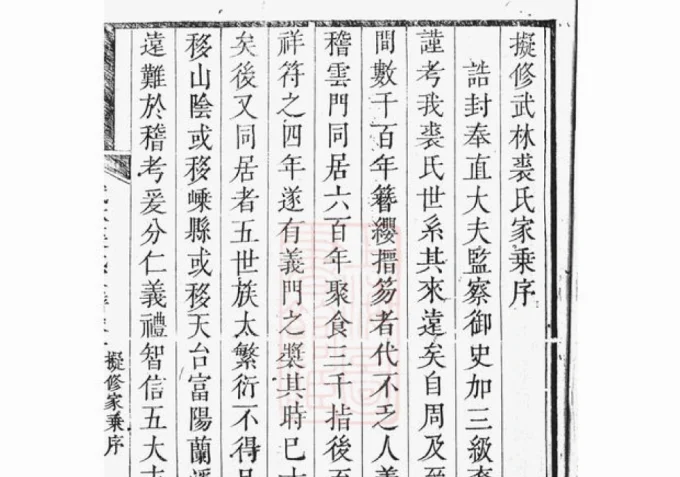 擬修武林裘氏家乘序
誥封奉直大夫監察御史加三級
謹考我裘氏世系其來遠矣自周及
間數千百年簪纓搢笏者代不乏人
稽雲門同居六百年聚食三千指後
祥符之四年遂有義門之奬其時已
矣後又同居者五世族太繁衍不得
移山陰或移嵊縣或移天台富陽蘭
遠難於稽考爰分仁義禮智信五大
擬修家乘序